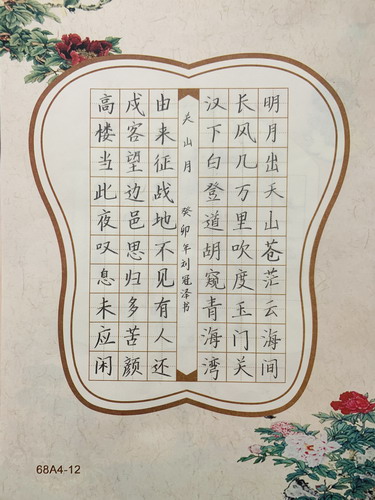 明月出天山苍茫云海间
长风几万里吹度玉门关
汉下白登道胡窥青海湾
关山月 癸卯年刘冠泽书
由来征战地不见有人还
戍客望边邑思归多苦颜
高楼当此夜叹息未应闲
68A4-12